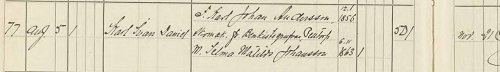 F. Karl Johan Andersson, 12/1 1856
77 Aug 5 1 Karl Ivan Daniel 5D1 nov 21
M. Selma Matilda Johansson 6/11 1863 1